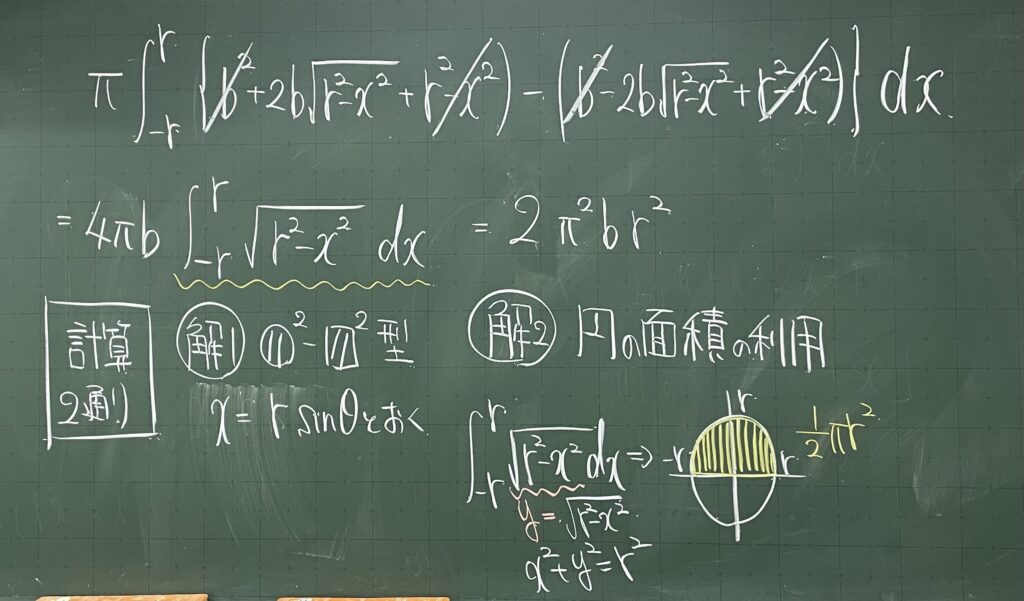 π∫_{-r}^{r} {(b²+2b√(r²-x²)+r²-x²) - (b²-2b√(r²-x²)+r²-x²)} dx
= 4πb ∫_{-r}^{r} √(r²-x²) dx = 2π²br²
計算
2通り
解1 ○²-□²型
x = r sinθとおく
解2 円の面積の利用
∫_{-r}^{r} √(r²-x²) dx ⇒
y = √(r²-x²)
x²+y²=r²
r
-r r
1/2 πr²